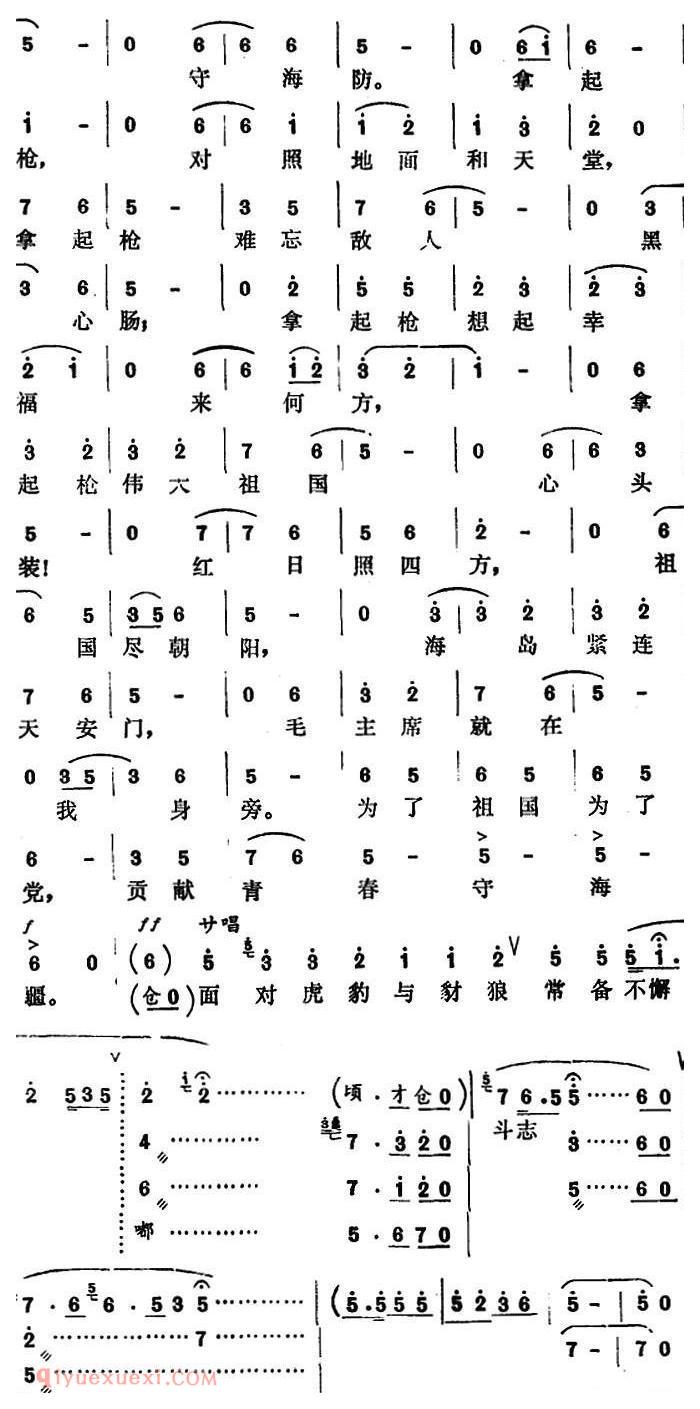 5 - | 0 6 | 6 6 | 5 - | 0 6 i | 6 -
守 海 防。 拿 起
i - | 0 6 | 6 i | i 2 | i 3 | 2 0
枪, 对 照 地 面 和 天 堂,
7 6 | 5 - | 3 5 | 7 6 | 5 - | 0 3
拿 起 枪 难 忘 敌 人 黑
3 6 | 5 - | 0 2 | 5 5 | 2 3 | 2 3
心 肠; 拿 起 枪 想 起 幸
2 i | 0 6 | 6 i 2 | 3 2 | i - | 0 6
福 来 何 方, 拿
3 2 | 3 2 | 7 6 | 5 - | 0 6 | 6 3
起 枪 伟 大 祖 国 心 头
5 - | 0 7 | 7 6 | 5 6 | 2 - | 0 6
装! 红 日 照 四 方, 祖
6 5 | 3 5 6 | 5 - | 0 3 | 3 2 | 3 2
国 尽 朝 阳, 海 岛 紧 连
7 6 | 5 - | 0 6 | 3 2 | 7 6 | 5 -
天 安 门, 毛 主 席 就 在
0 3 5 | 3 6 | 5 - | 6 5 | 6 5 | 6 5
我 身 旁。 为 了 祖 国 为 了
6 - | 3 5 | 7 6 | 5 - | 5 - | 5 -
党, 贡 献 青 春 守 海
f ff サ唱
6 0 (6) 5 5 3 3 2 i i 2 V 5 5 5 i .
疆。 (仓 0) 面 对 虎 豹 与 豺 狼 常 备 不 懈
2 5 3 5 2 i 2 ………… (顷 . 才 仓 0) | 5 7 6 . 5 5 …… 6 0
斗志
4 ………… 7 . 3 2 0 3 …… 6 0
6 ………… 7 . i 2 0 5 …… 6 0
嘟 ………… 5 . 6 7 0
7 . 6 5 6 . 5 3 5 ………… | (5 . 5 5 5 | 5 2 3 6 | 5 - | 5 0
2 ………… 7 ………… 7 - | 7 0
5 …………
qiyuexuexi.COM